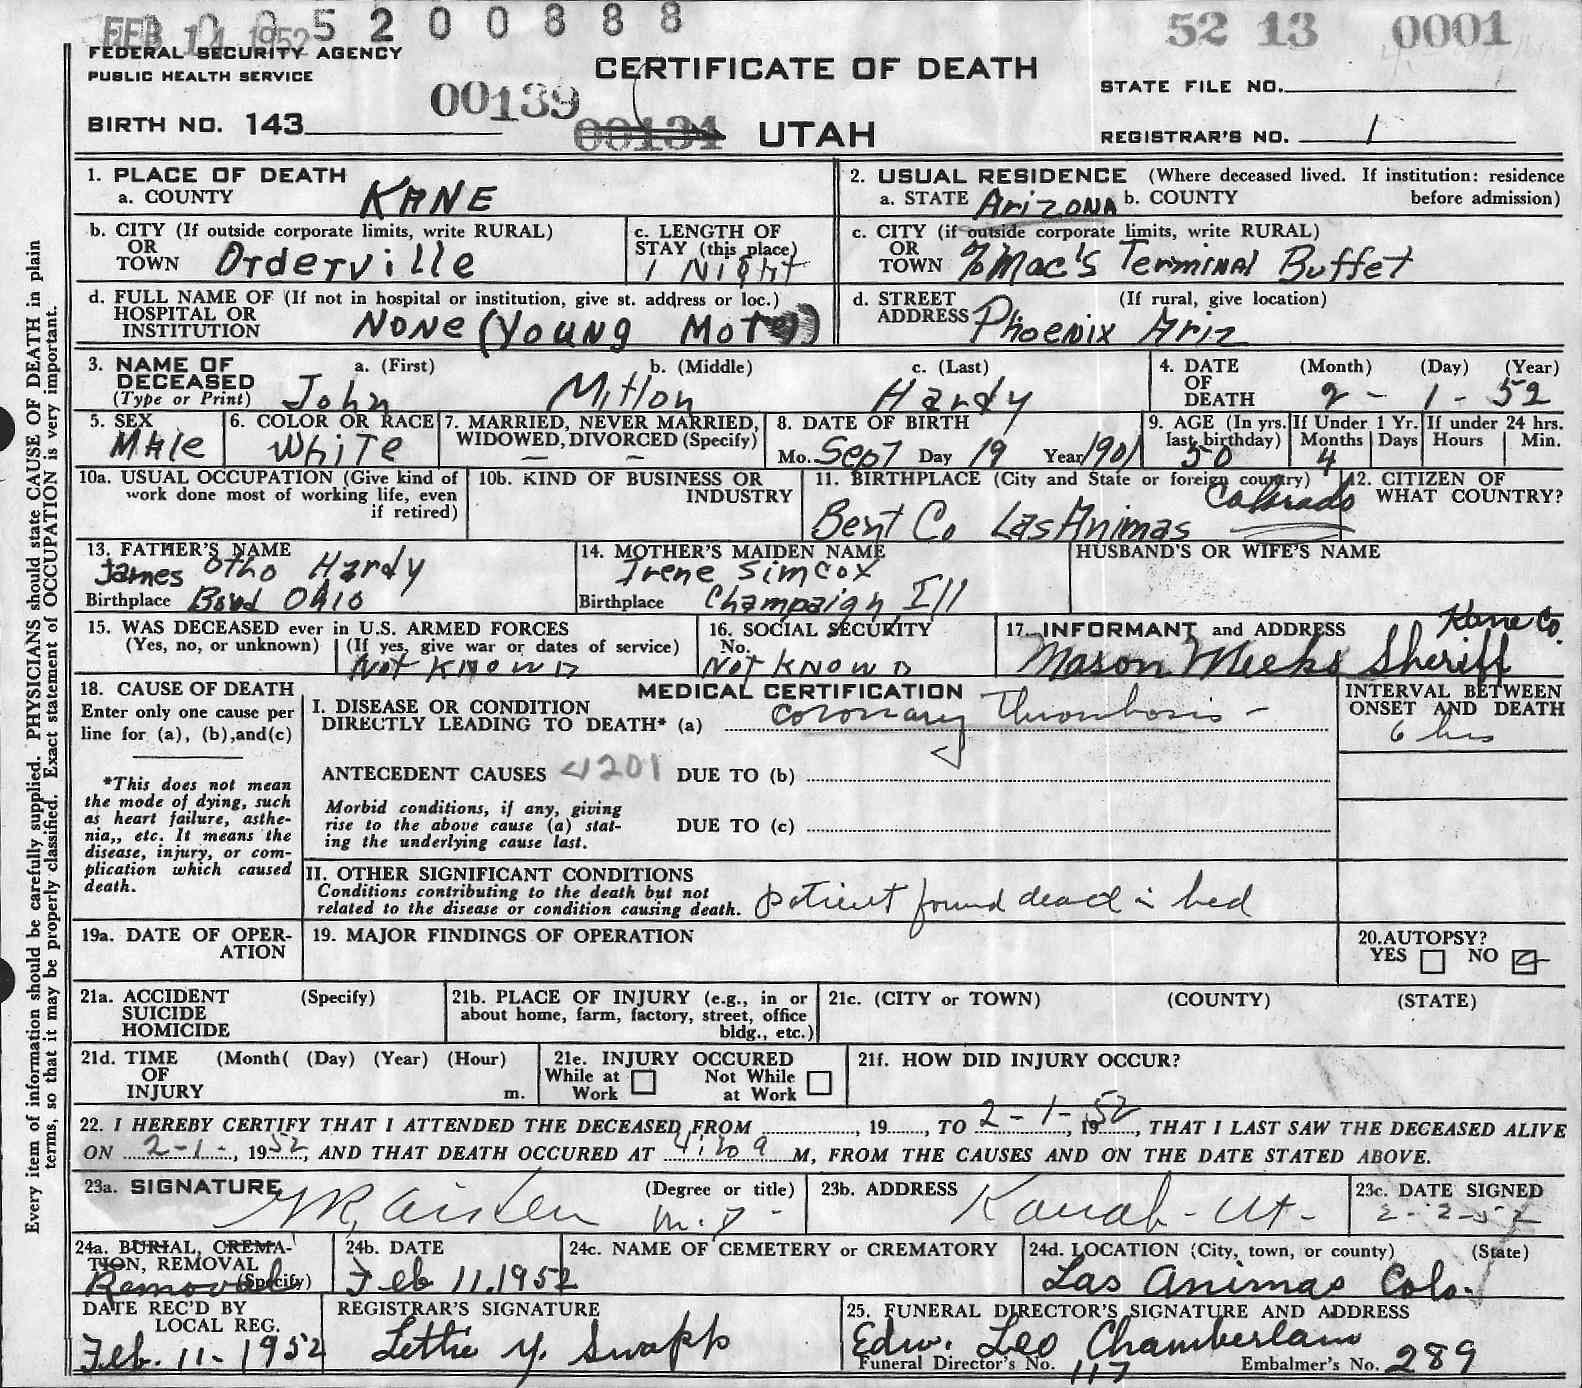 FEB 14 1952 5 2 0 0 8 8 8
52 13 0001
FEDERAL SECURITY AGENCY
PUBLIC HEALTH SERVICE
CERTIFICATE OF DEATH
STATE FILE NO.
00139
BIRTH NO. 143
00134
UTAH
REGISTRAR'S NO. 1
Every item of information should be carefully supplied. PHYSICIANS should state CAUSE OF DEATH in plain
terms, so that it may be properly classified. Exact statement of OCCUPATION is very important.
1. PLACE OF DEATH
a. COUNTY KANE
2. USUAL RESIDENCE (Where deceased lived. If institution: residence
a. STATE Arizona b. COUNTY before admission)
b. CITY (If outside corporate limits, write RURAL)
OR
TOWN Orderville
c. LENGTH OF
STAY (this place)
1 Night
c. CITY (if outside corporate limits, write RURAL)
OR
TOWN % Mac's Terminal Buffet
d. FULL NAME OF (If not in hospital or institution, give st. address or loc.)
HOSPITAL OR
INSTITUTION NONE (Young Motel)
d. STREET (If rural, give location)
ADDRESS Phoenix Ariz
3. NAME OF a. (First) b. (Middle) c. (Last)
DECEASED
(Type or Print) John Milton Hardy
4. DATE (Month) (Day) (Year)
OF
DEATH 2 - 1 - 52
5. SEX
Male
6. COLOR OR RACE
White
7. MARRIED, NEVER MARRIED,
WIDOWED, DIVORCED (Specify)
– –
8. DATE OF BIRTH
Mo. Sept Day 19 Year 1901
9. AGE (In yrs.
last birthday)
50
If Under 1 Yr.
Months Days
4
If under 24 hrs.
Hours Min.
10a. USUAL OCCUPATION (Give kind of
work done most of working life, even
if retired)
10b. KIND OF BUSINESS OR
INDUSTRY
11. BIRTHPLACE (City and State or foreign country)
Colorado
Bent Co Las Animas
12. CITIZEN OF
WHAT COUNTRY?
13. FATHER'S NAME
James Otho Hardy
Birthplace Boyd Ohio
14. MOTHER'S MAIDEN NAME
Irene Simcox
Birthplace Champaign Ill
HUSBAND'S OR WIFE'S NAME
15. WAS DECEASED ever in U.S. ARMED FORCES
(Yes, no, or unknown) (If yes, give war or dates of service)
Not Known
16. SOCIAL SECURITY
No.
Not Known
17. INFORMANT and ADDRESS Kane Co.
Mason Meeks Sheriff
18. CAUSE OF DEATH
Enter only one cause per
line for (a), (b), and (c)
*This does not mean
the mode of dying, such
as heart failure, asthe-
nia,, etc. It means the
disease, injury, or com-
plication which caused
death.
MEDICAL CERTIFICATION
I. DISEASE OR CONDITION
DIRECTLY LEADING TO DEATH* (a) Coronary Thrombosis –
INTERVAL BETWEEN
ONSET AND DEATH
6 hrs
ANTECEDENT CAUSES 4201 DUE TO (b)
Morbid conditions, if any, giving
rise to the above cause (a) stat-
ing the underlying cause last.
DUE TO (c)
II. OTHER SIGNIFICANT CONDITIONS
Conditions contributing to the death but not
related to the disease or condition causing death. patient found dead in bed
19a. DATE OF OPER-
ATION
19. MAJOR FINDINGS OF OPERATION
20. AUTOPSY?
YES NO
21a. ACCIDENT (Specify)
SUICIDE
HOMICIDE
21b. PLACE OF INJURY (e.g., in or
about home, farm, factory, street, office
bldg., etc.)
21c. (CITY or TOWN) (COUNTY) (STATE)
21d. TIME (Month( (Day) (Year) (Hour)
OF
INJURY m.
21e. INJURY OCCURED
While at Not While
Work at Work
21f. HOW DID INJURY OCCUR?
22. I HEREBY CERTIFY THAT I ATTENDED THE DECEASED FROM , 19 , TO 2-1-52, 19 , THAT I LAST SAW THE DECEASED ALIVE
ON 2-1-, 1952, AND THAT DEATH OCCURED AT M, FROM THE CAUSES AND ON THE DATE STATED ABOVE.
23a. SIGNATURE (Degree or title)
Aiken M.D -
23b. ADDRESS
Kanab - Ut -
23c. DATE SIGNED
2-2-52
24a. BURIAL, CREMA-
TION, REMOVAL
Removal (Specify)
24b. DATE
Feb 11. 1952
24c. NAME OF CEMETERY or CREMATORY
24d. LOCATION (City, town, or county) (State)
Las Animas Colo.
DATE REC'D BY
LOCAL REG.
Feb. 11 - 1952
REGISTRAR'S SIGNATURE
Lettie Y. Swapp
25. FUNERAL DIRECTOR'S SIGNATURE AND ADDRESS
Edw. Leo Chamberlain
Funeral Director's No. 117 Embalmer's No. 289